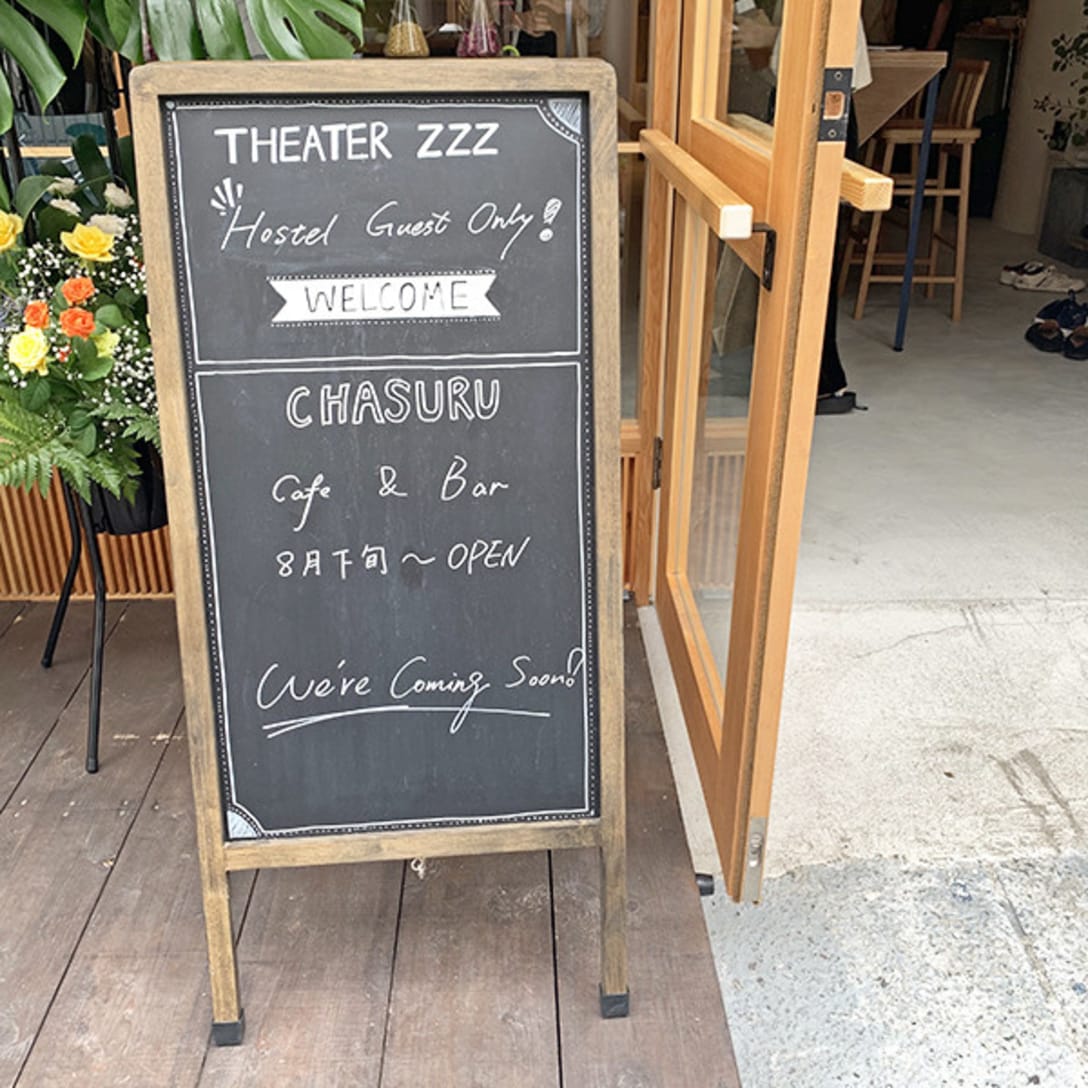 THEATER ZZZ
Hostel Guest Only!
WELCOME
CHASURU
Cafe & Bar
8月下旬〜OPEN
We're Coming Soon!